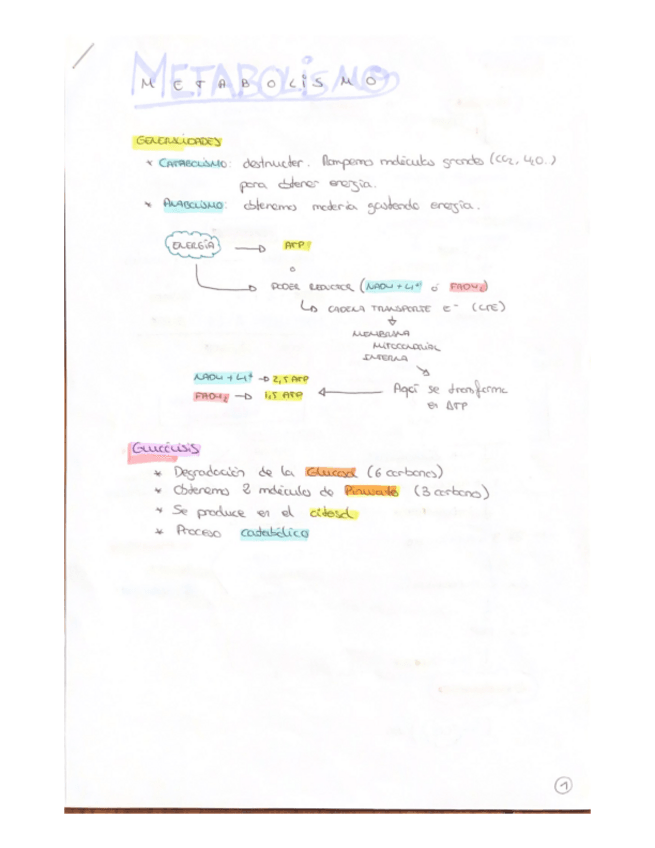 METABOLISMO
GENERALIDADES
* CATABOLISMO: destructor. Rompemos moléculas grandes (CO2, H2O..)
para obtener energía.
* ANABOLISMO: obtenemos materia gastando energía.
ENERGÍA → ATP
o
PODER REDUCTOR (NADH + H+ ó FADH2)
↳ CADENA TRANSPORTE e- (CTE)
MEMBRANA
MITOCONDRIAL
INTERNA
NADH + H+ → 2,5 ATP
Aquí se transforma
FADH2 → 1,5 ATP
en ATP
GLUCÓLISIS
* Degradación de la Glucosa (6 carbonos)
* Obtenemos 2 moléculas de Piruvato (3 carbono)
* Se produce en el citosol
* Proceso catabólico
1